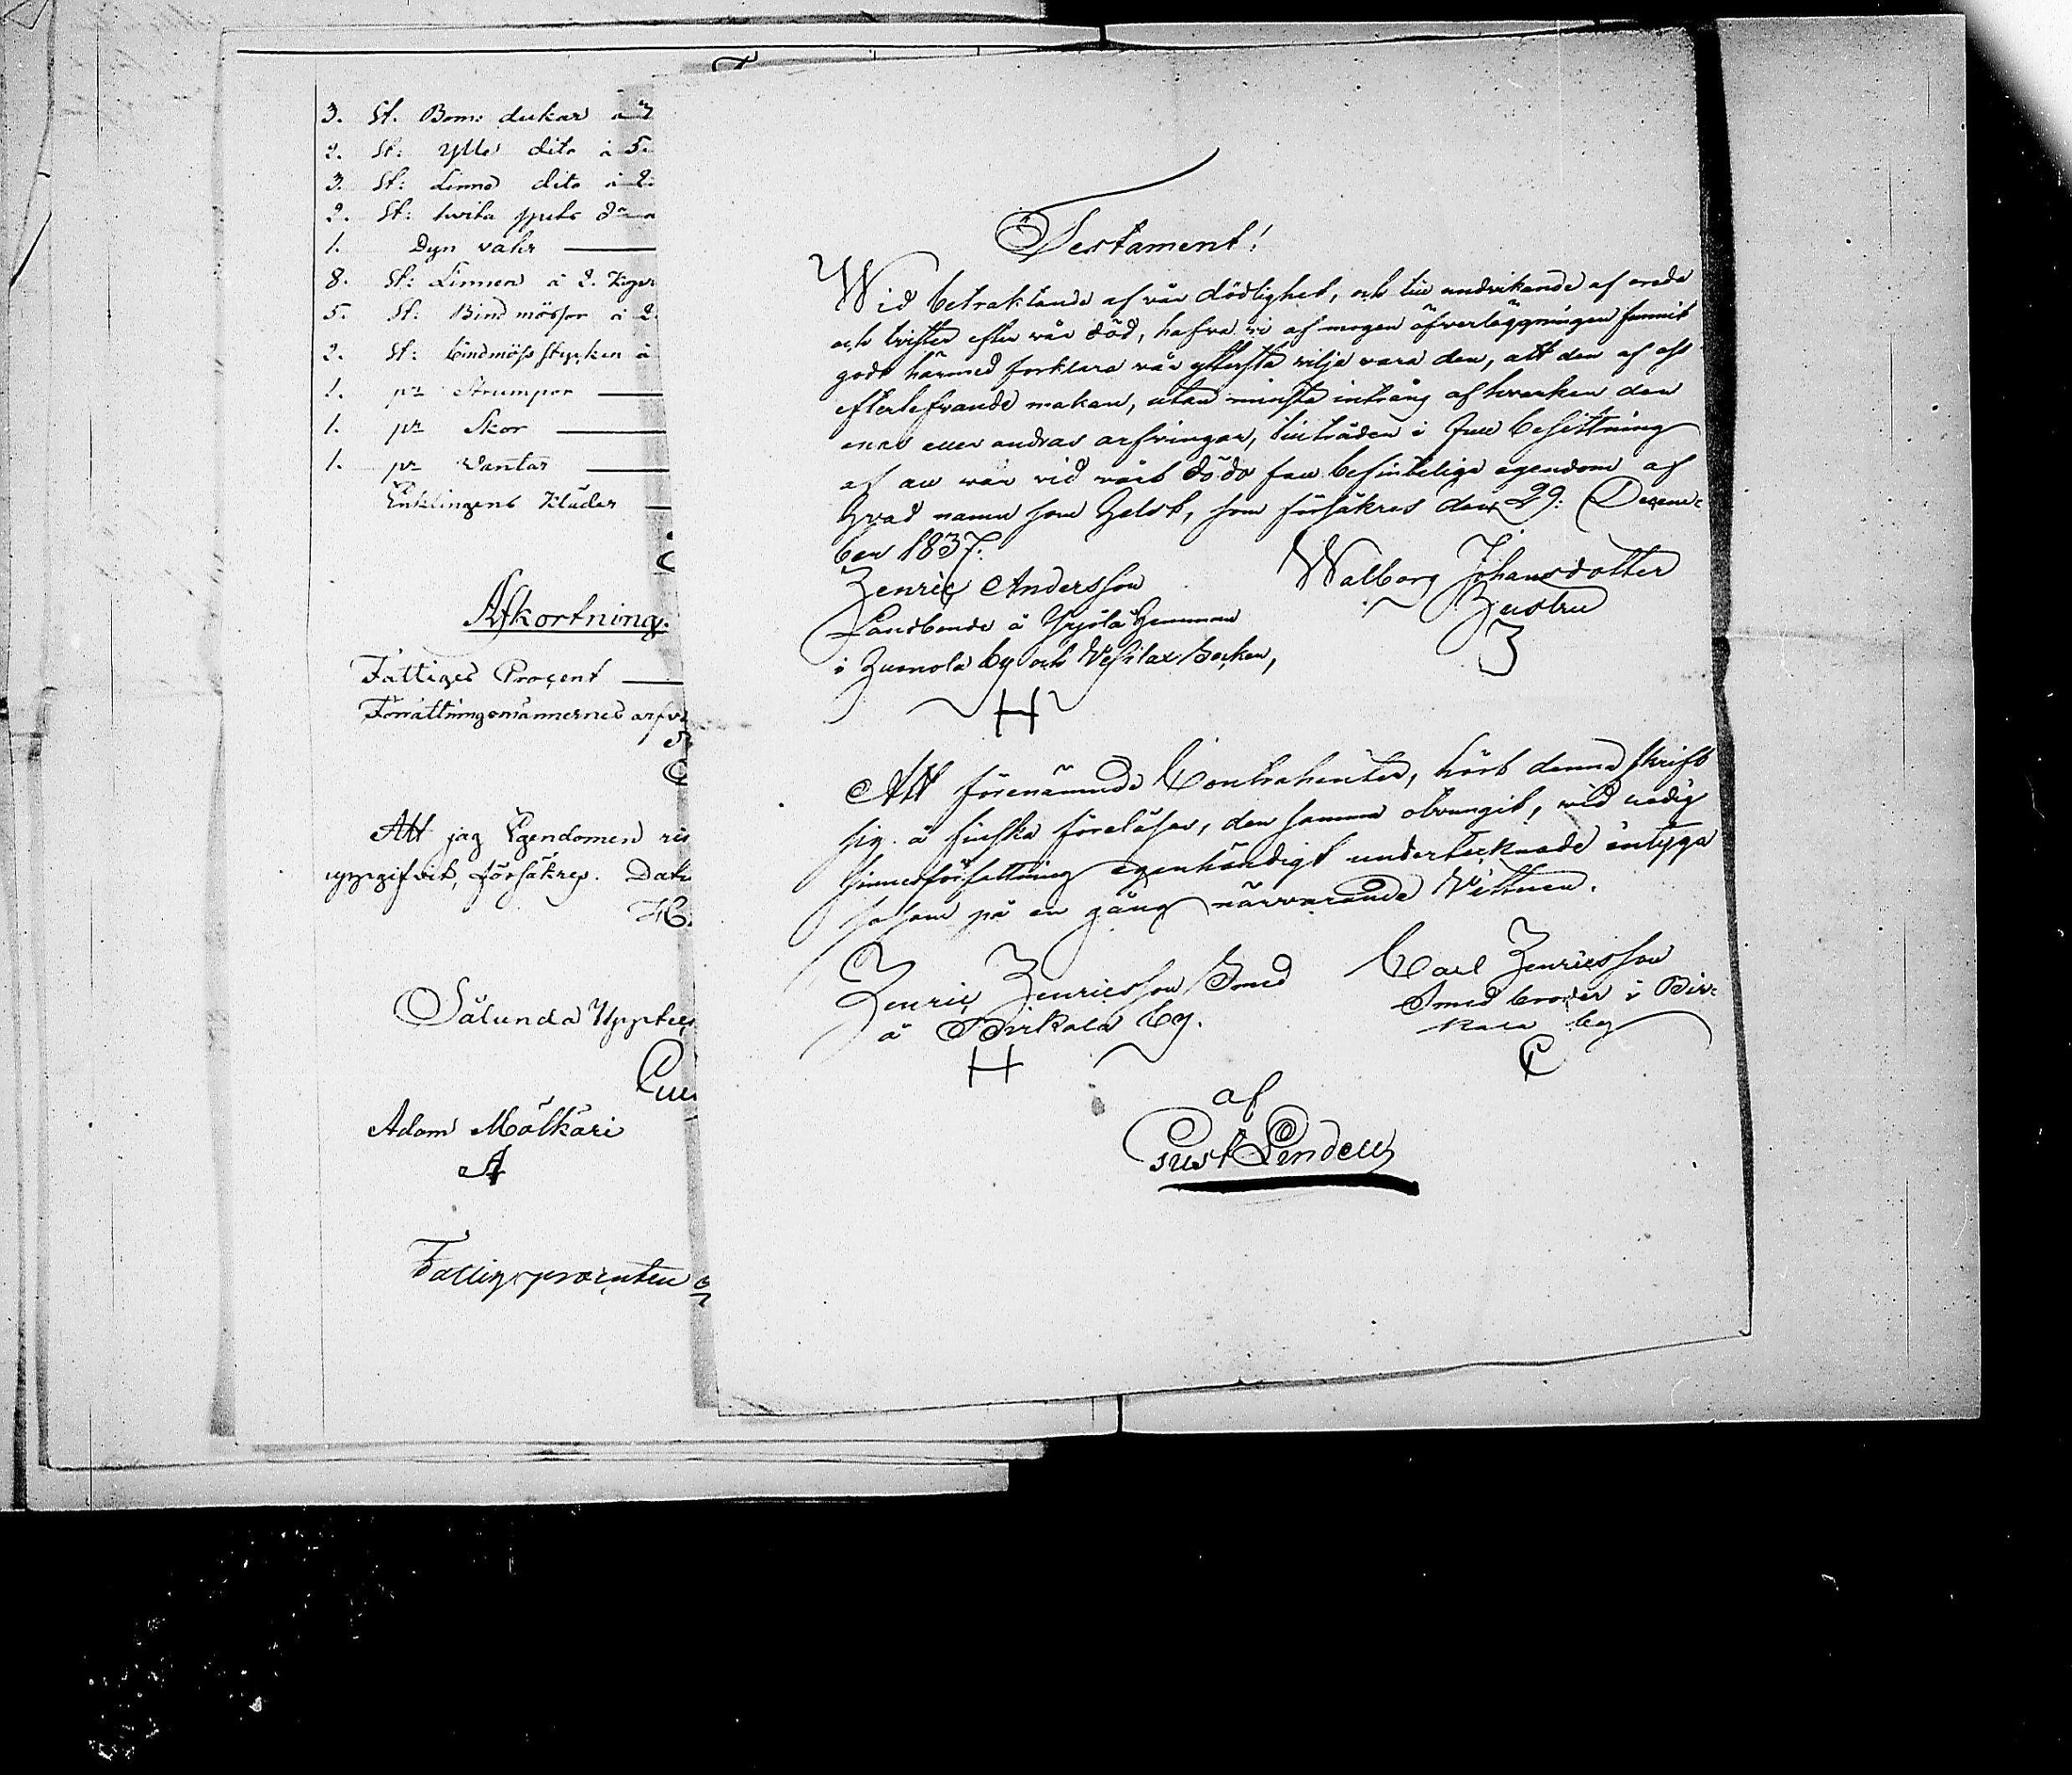 3. St. Bom: dukar à 3
2. St: Ylle dito à 5.
3. St: Linne dito à 2.
2. St: hvita
1. Dyn vahr
8. St: Linnen à 2.
5. St: Bindmössor à 2.
2. St: bindmöss stycken à
1. pr Strumpor
1. pr Skor
1. pr Vantar
Enklingens Kläder
Afkortning.
Fattiges Procent
Förrättningsmännernes arfv
Att jag Egendomen
uppgifvit, försäkras. Dat
H.
Sålunda
Adam Mälkäri
A
Fattigprocenten
Testament!
Wid betraktande af vår dödlighet, och till undvikande af oreda
och tvister efter vår död, hafva vi af mogen öfverläggningen funnit
godt härmed förklara vår yttersta vilja vara den, att den af oss
efterlefvande makan, utan minsta intrång af hvarken den
enas eller andras arfvingar, tillträder i full besittning
af all vår vid vårt döds fall befinteliga egendom af
hvad namn som helst, som försäkres den 29: Decem-
ber 1837.
Henric Andersson
Landbonde å Yrjölä Hemman
i Humola by och Vesilax Socken,
H
Walborg Johansdotter
Hustru
3
Att förenämnde Contrahenter, hört denna skrift
sig å finska föreläsas, den samma otvungit, vid redig
sinnesförfattning egenhändigt undertecknade intyga
såsom på en gång närvarande Vittnen.
Henric Henricsson Smed
å Birkala by.
H
Carl Henricsson
Smed broder i Bir-
kala by
C
af
Gust Lindell